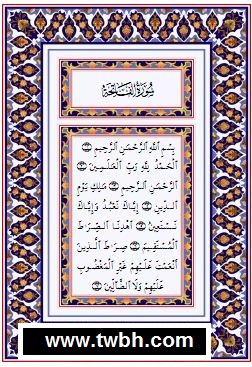 سُورَةُ الفَاتِحَةِ
بِسْمِ ٱللَّهِ ٱلرَّحْمَٰنِ ٱلرَّحِيمِ ۝
ٱلْحَمْدُ لِلَّهِ رَبِّ ٱلْعَٰلَمِينَ ۝
ٱلرَّحْمَٰنِ ٱلرَّحِيمِ ۝ مَٰلِكِ يَوْمِ
ٱلدِّينِ ۝ إِيَّاكَ نَعْبُدُ وَإِيَّاكَ
نَسْتَعِينُ ۝ ٱهْدِنَا ٱلصِّرَٰطَ
ٱلْمُسْتَقِيمَ ۝ صِرَٰطَ ٱلَّذِينَ
أَنْعَمْتَ عَلَيْهِمْ غَيْرِ ٱلْمَغْضُوبِ
عَلَيْهِمْ وَلَا ٱلضَّآلِّينَ ۝
www.twbh.com